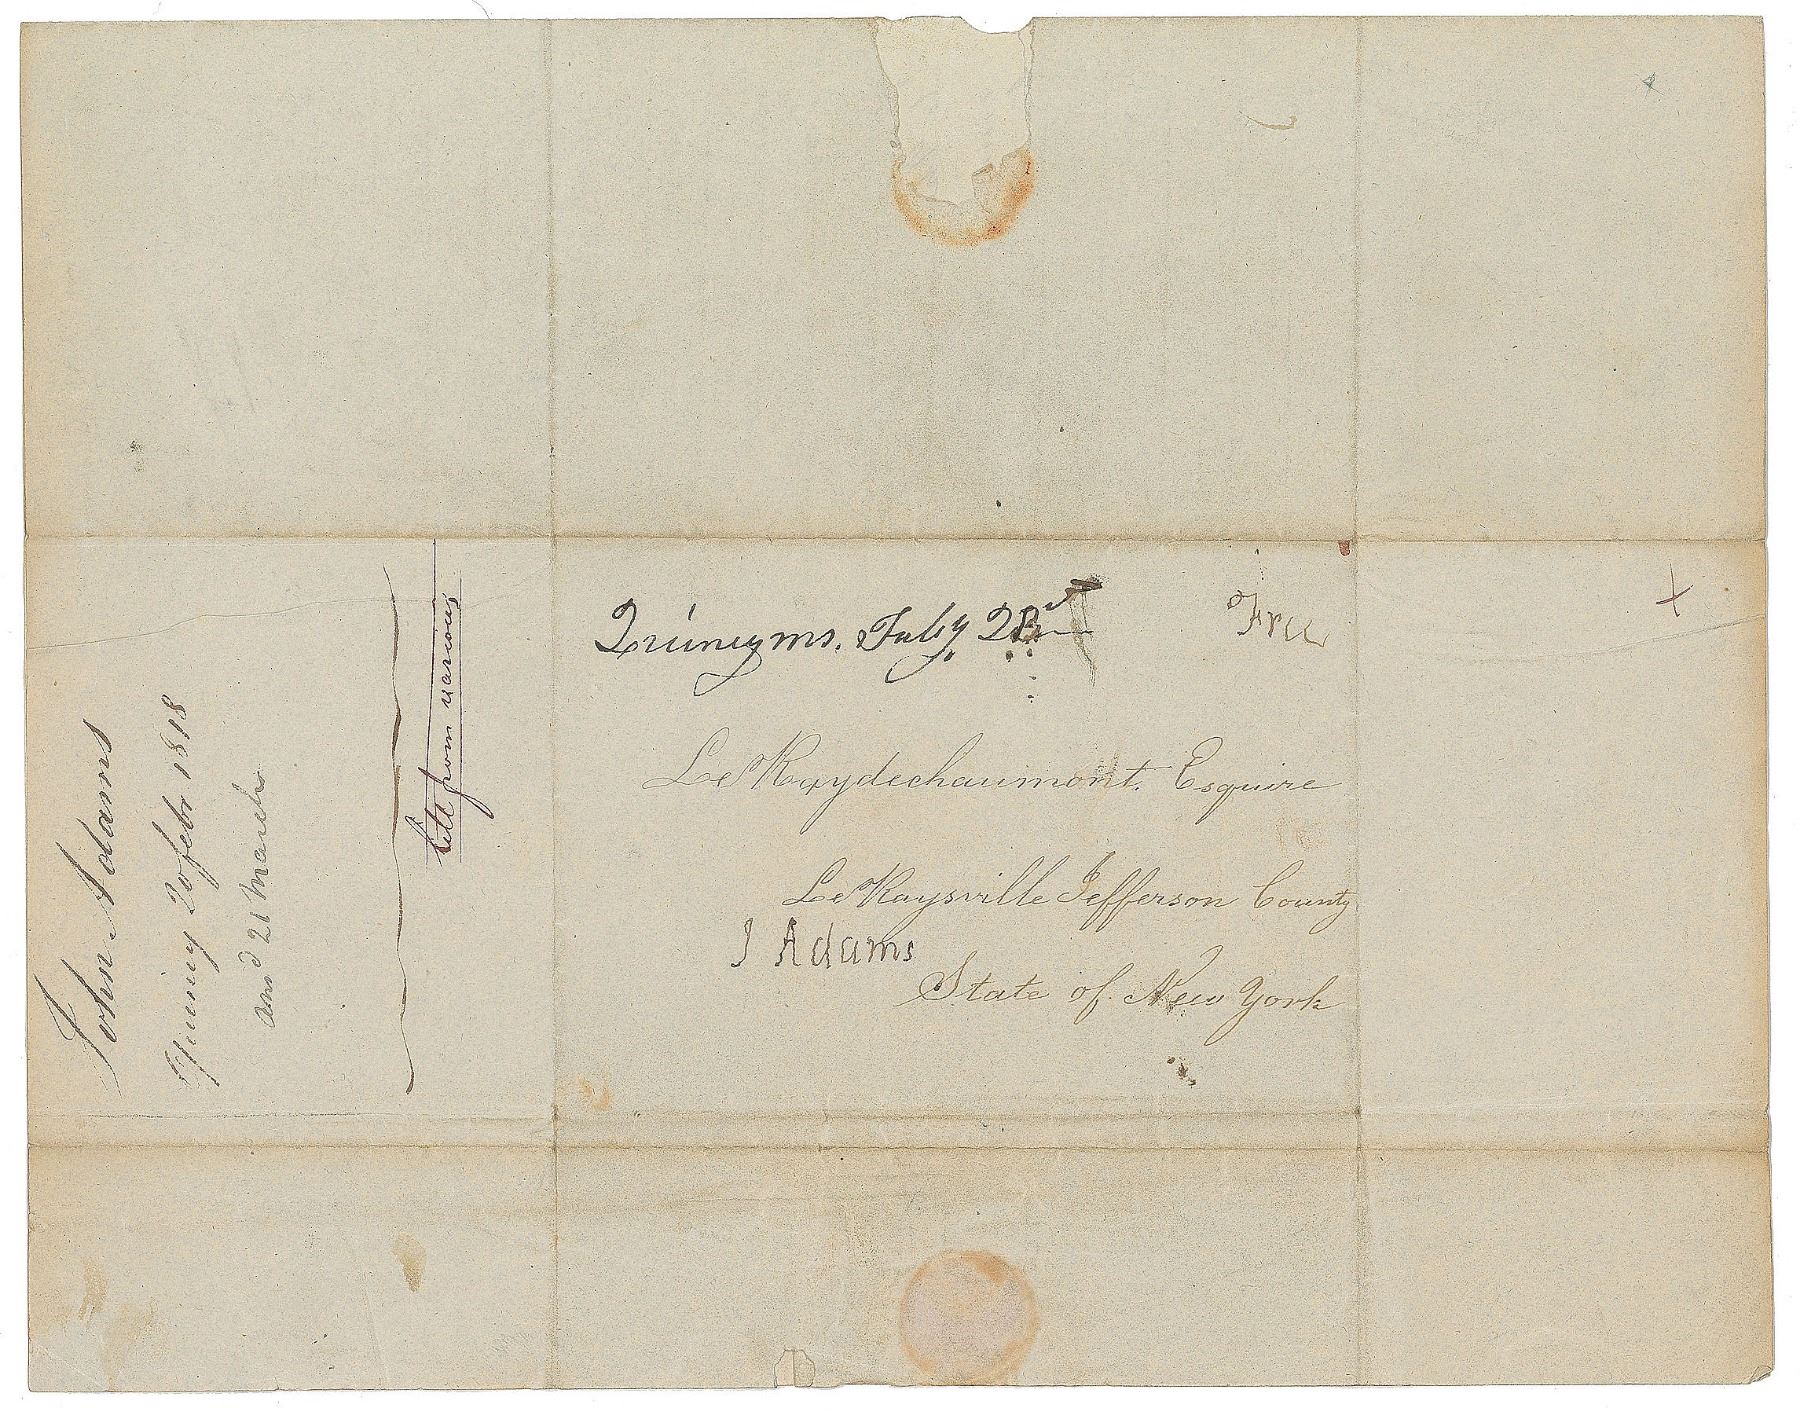 Quincy ms. Feby 28
Free
Le Raydechaumont. Esquire
Le Raysville Jefferson County
J Adams
State of New York
John Adams
Quincy 20 febr 1818
and 21 March
Lett from various